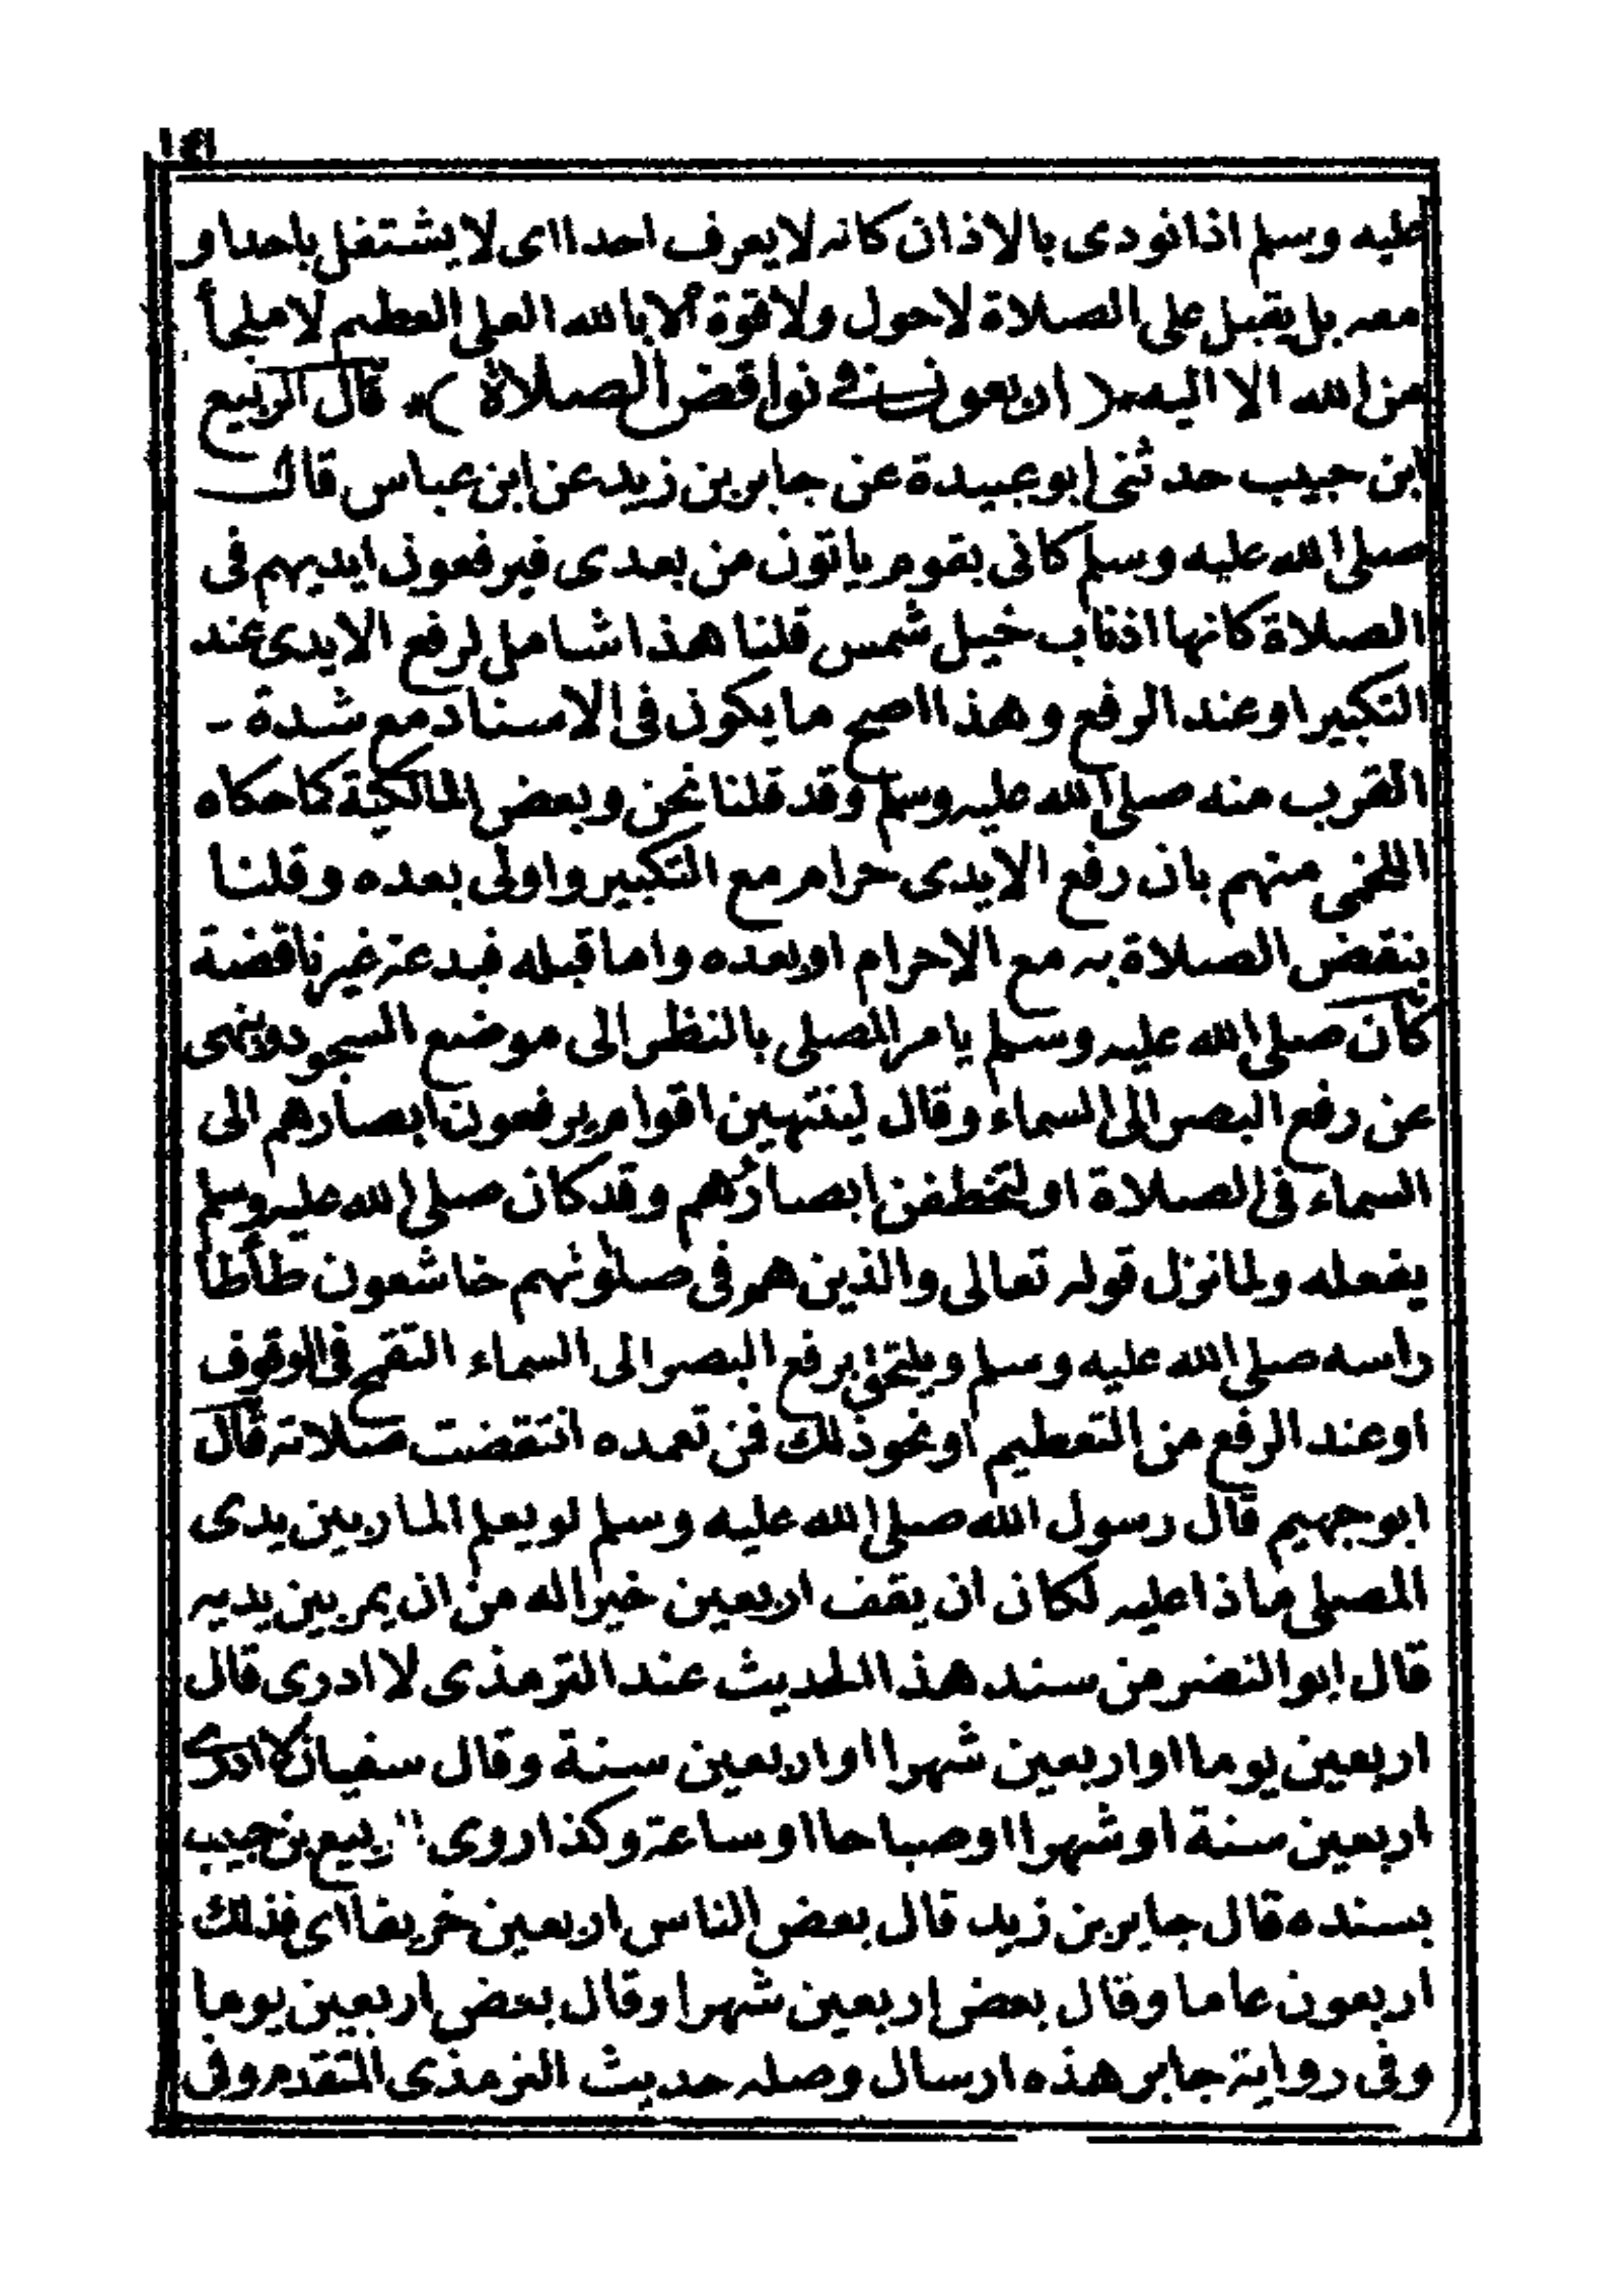 ١٤١
عليه وسلم اذا نودى بالاذان كانه لا يعرف احدا اى لا يشتغل باحد او
معه بل يقبل على الصلاة لا حول ولا قوة الا بالله العلى العظيم لا ملجأ
من الله الا اليه *( اربعون فى نواقض الصلاة )* قال الربيع
ابن حبيب حدثنى ابو عبيدة عن جابر بن زيد عن ابن عباس قال
صلى الله عليه وسلم كانى بقوم ياتون من بعدى فيرفعون ايديهم فى
الصلاة كانها اذناب خيل شمس قلنا هذا شامل لرفع الايدى عند
التكبير او عند الرفع وهذا اصح ما يكون فى الاسناد مع شدة -
القرب منه صلى الله عليه وسلم وقد قلنا نحن وبعض المالكية كما حكاه
اللخمى منهم بان رفع الايدى حرام مع التكبير واولى بعده وقلنا
بنقض الصلاة به مع الاحرام او بعده واما قبله فبدعة غير ناقضة
كان صلى الله عليه وسلم يامر المصلى بالنظر الى موضع السجود وينهى
عن رفع البصر الى السماء وقال لينتهين اقوام يرفعون ابصارهم الى
السماء فى الصلاة او لتخطفن ابصارهم وقد كان صلى الله عليه وسلم
يفعله ولما نزل قوله تعالى والذين هم فى صلوتهم خاشعون طأطأ
راسه صلى الله عليه وسلم ويلتحق برفع البصر الى السماء التقمح فى الوقوف
او عند الرفع من التعظيم او نحو ذلك فمن تعمده انتقضت صلاته قال
ابو جهيم قال رسول الله صلى الله عليه وسلم لو يعلم المار بين يدى
المصلى ماذا عليه لكان ان يقف اربعين خيرا له من ان يمر بين يديه
قال ابو النضر من سند هذا الحديث عند الترمذى لا ادرى قال
اربعين يوما او اربعين شهرا او اربعين سنة وقال سفيان لا ادرى
اربعين سنة او شهرا او صباحا او ساعة وكذا روى ربيع بن حبيب
بسنده قال جابر بن زيد قال بعض الناس اربعين خريفا اى فذلك
اربعون عاما وقال بعض اربعين شهرا وقال بعض اربعين يوما
وفى رواية جابر هذه ارسال وصله حديث الترمذى المتقدم وفى